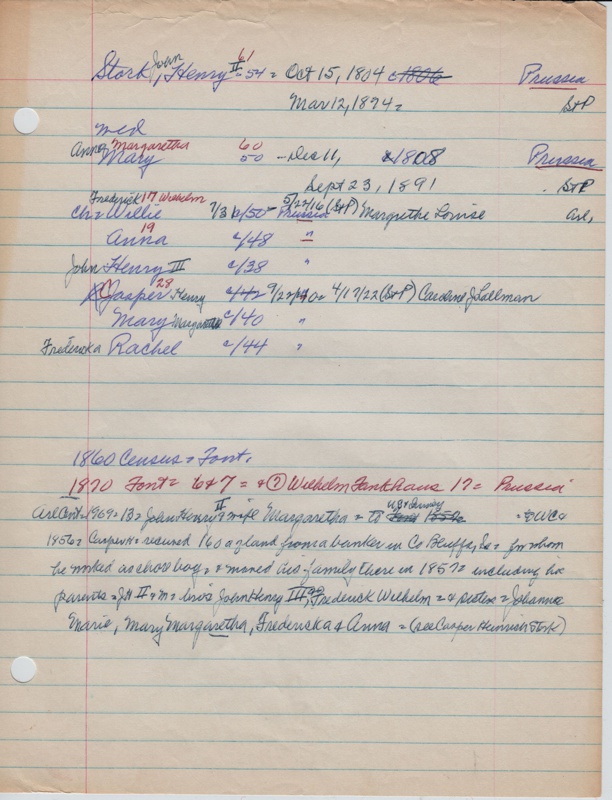 Stork, John Henry II 61 - 54 = Oct 15, 1804 c1806 Prussia
Mar 12, 1894 = S+P
med
Anna Margaretha 60
Mary 50 - Dec 11, 1808 Prussia
Sept 23, 1891 S+P
Frederick 17 Wilhelm
Ch = Willie 7/3 1850 - Prussia 5/22/16 (S+P) Margrethe Louise Arl,
19
Anna c/48 "
John Henry III c/38 "
Casper 28 Henry c/42 9/22/40 = 4/17/22 (S+P) Caroline J Lallman
Mary Margaretha c/40 "
Frederiska Rachel c/44 "
1860 Census = Font.
1870 Font = 6 + 7 = + (7) Wilhelm Fankhaus 17 = Prussia
Arl Cent = 1969 = 13 = John Henry II + wife Margaretha = To US + Germany = + WC +
1856 = Casper H = received 160 a land from a banker in Co Bluffs, Ia = for whom
he worked as chore boy = + moved his family there in 1857 = including his
parents = JH II + M = bros John Henry III, Frederick Wilhelm = + sisters = Johanna
Marie, Mary Margaretha, Frederiska + Anna = (see Casper Heinrich Stork)